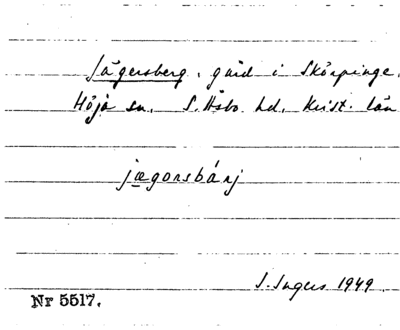 Jägersberg, gård i Skörpinge.
Höja sn. S. Åsbo hd. Krist. län
jægorsbárj
I. Ingers 1949.
Nr 5517.